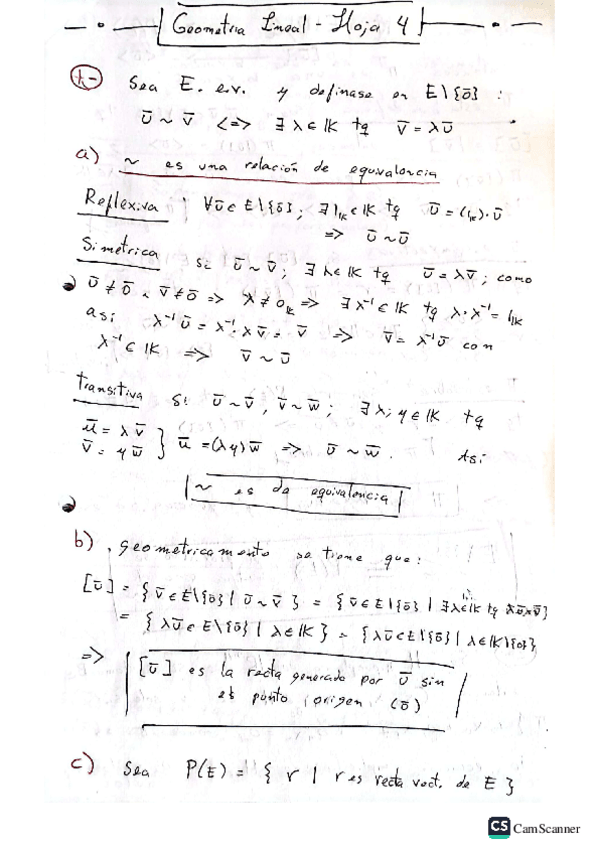 Geometria Lineal - Hoja 4
1.- Sea E. e.v. y definase en E\{ō} :
ū ~ v̄ <=> ∃ λ ∈ IK tq v̄ = λū
a) ~ es una relación de equivalencia
Reflexiva ∀ū ∈ E\{ō}; ∃ 1_IK ∈ IK tq ū = (1_IK)·ū
=> ū ~ ū
Simetrica Si ū ~ v̄; ∃ λ ∈ IK tq ū = λv̄; como
ū ≠ ō ∧ v̄ ≠ ō => λ ≠ 0_IK => ∃ λ⁻¹ ∈ IK tq λ·λ⁻¹ = 1_IK
asi λ⁻¹ū = λ⁻¹·λv̄ = v̄ => v̄ = λ⁻¹ū con
λ⁻¹ ∈ IK => v̄ ~ ū
transitiva Si ū ~ v̄, v̄ ~ w̄; ∃ λ; y ∈ IK tq
ū = λv̄
v̄ = y w̄ } ū = (λy)w̄ => ū ~ w̄. Asi
~ es de equivalencia
b). geometricamente se tiene que:
[ū] = { v̄ ∈ E\{ō} | ū ~ v̄ } = { v̄ ∈ E\{ō} | ∃ λ ∈ IK tq
= { λū ∈ E\{ō} | λ ∈ IK } = { λū ∈ E\{ō} | λ ∈ IK\{0} }
=> [ū] es la recta generado por ū sin
el punto origen (ō)
c) Sea P(E) = { r | r es recta vect. de E }
CS CamScanner